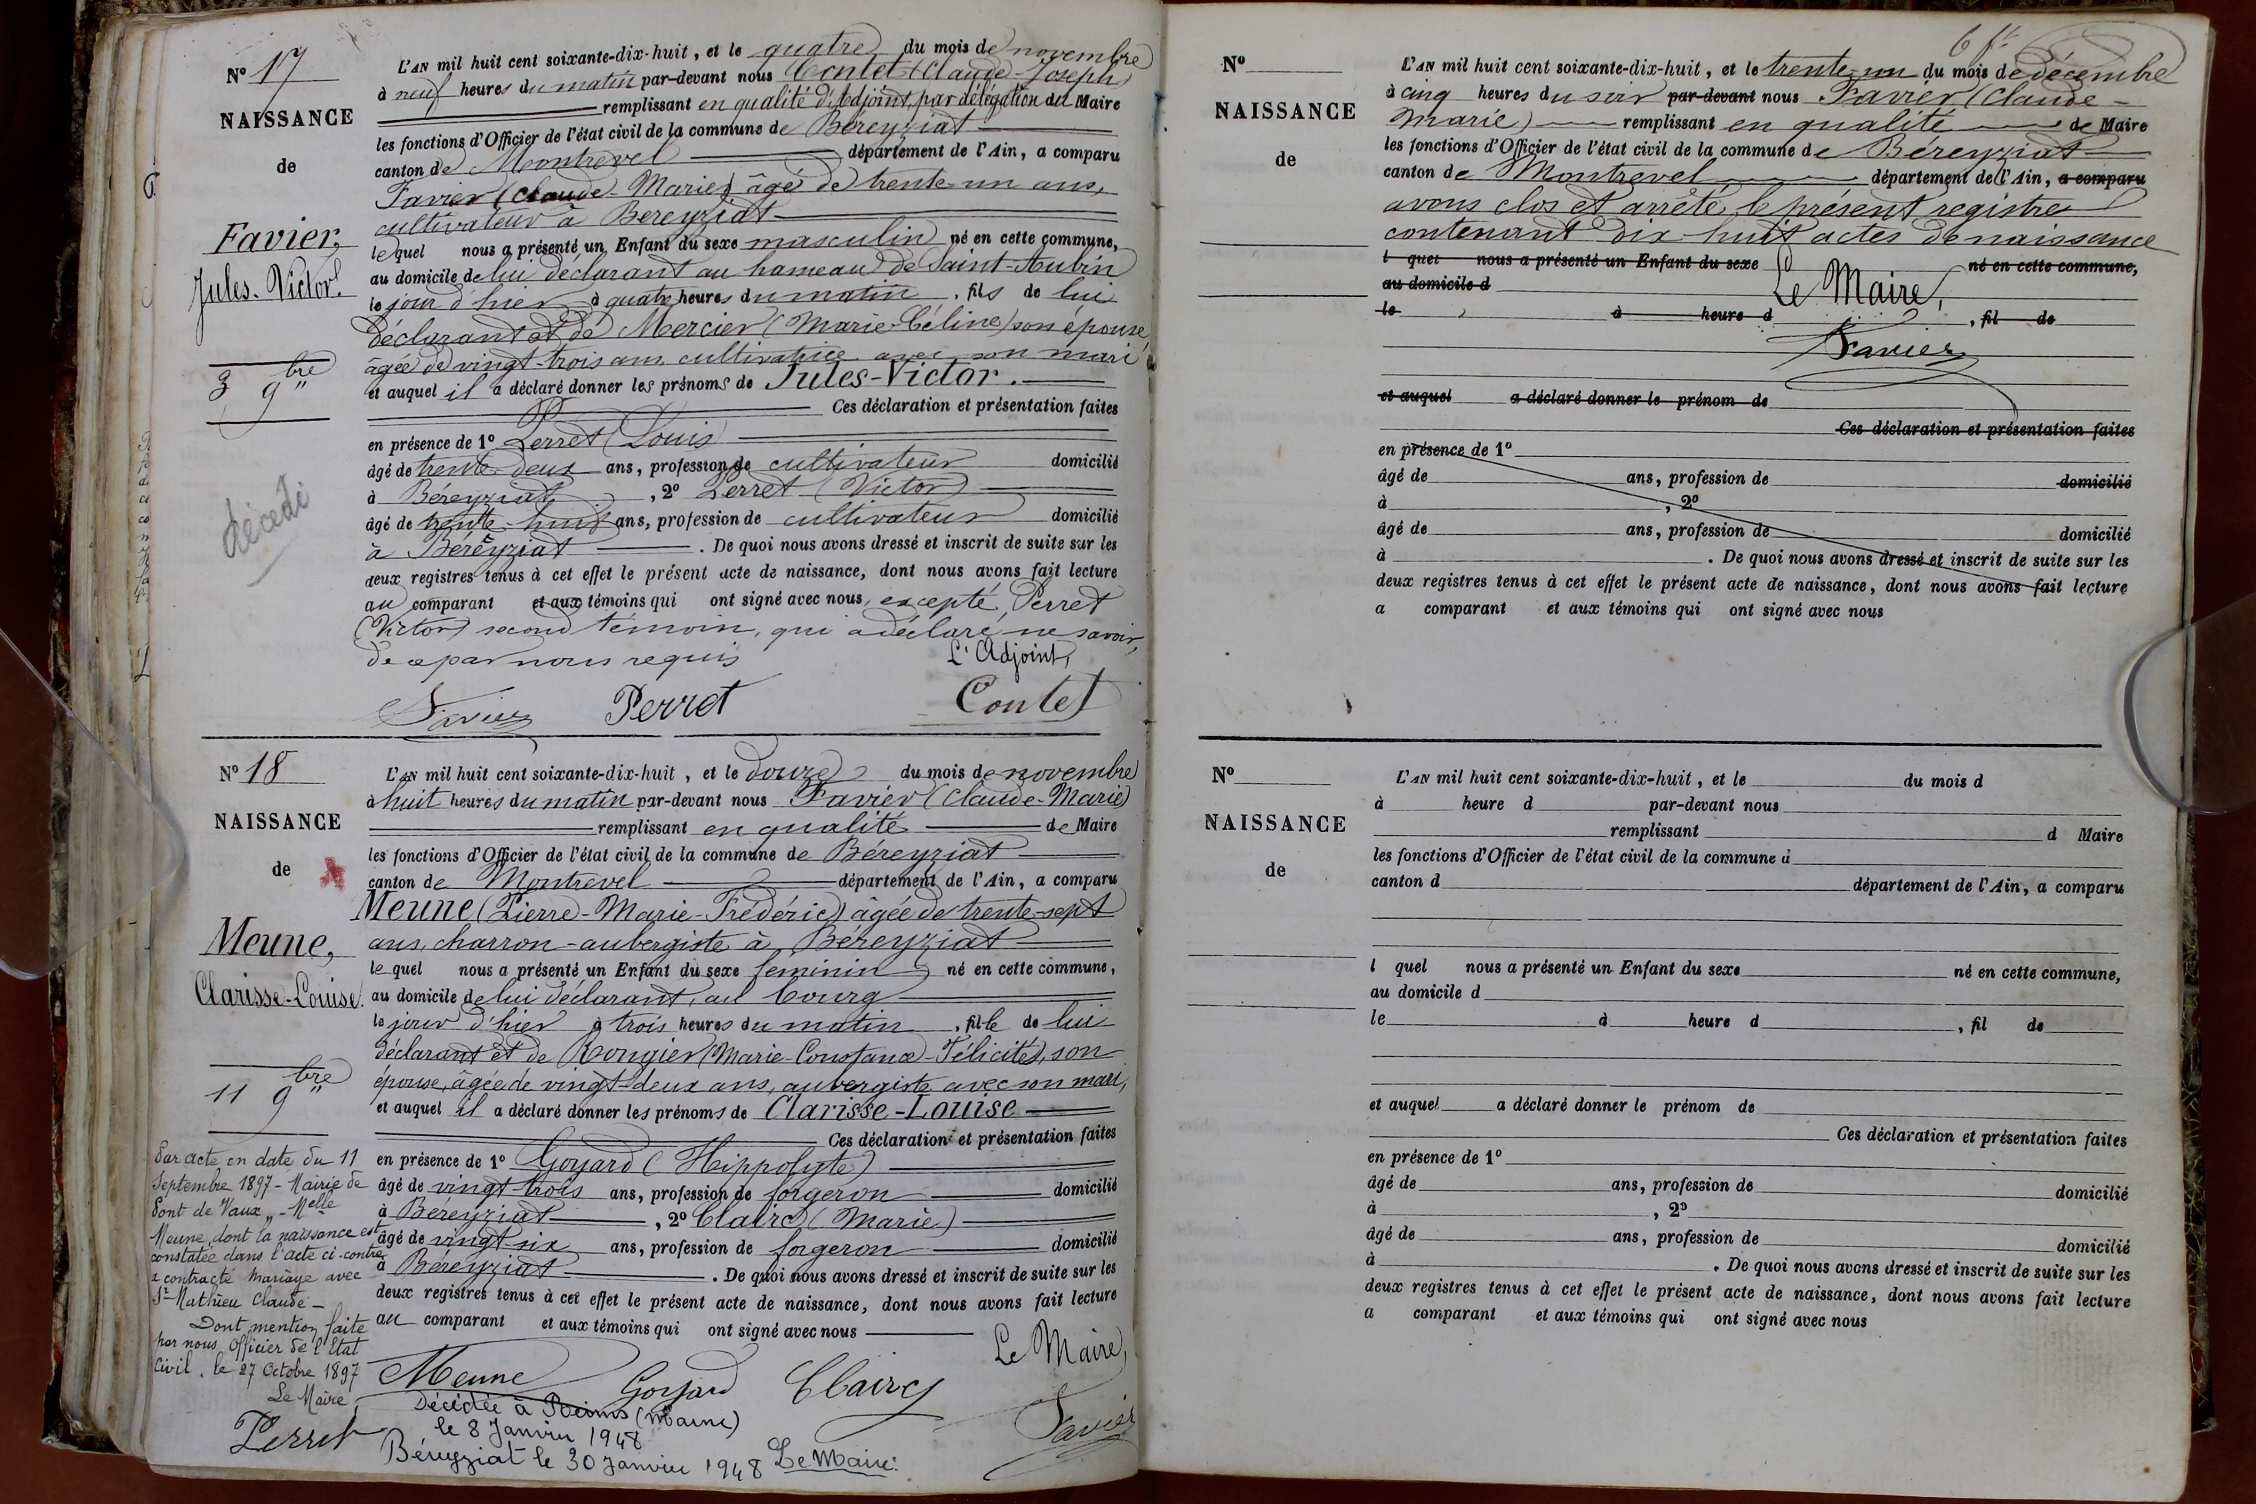 N° 17
NAISSANCE
de
Favier,
Jules-Victor.
3 9bre
décédé
L'AN mil huit cent soixante-dix-huit, et le quatre du mois de novembre
à neuf heures du matin par-devant nous Contet (Claude-Joseph)
remplissant en qualité d'Adjoint, par délégation du Maire
les fonctions d'Officier de l'état civil de la commune de Béreyziat
canton de Montrevel département de l'Ain, a comparu
Favier (Claude-Marie) âgé de trente-un ans,
cultivateur à Béreyziat
lequel nous a présenté un Enfant du sexe masculin né en cette commune,
au domicile de lui déclarant au hameau de Saint-Aubin
le jour d'hier à quatre heures du matin, fils de lui
déclarant et de Mercier (Marie-Céline) son épouse,
âgée de vingt-trois ans, cultivatrice avec son mari
et auquel il a déclaré donner les prénoms de Jules-Victor.
Ces déclaration et présentation faites
en présence de 1° Perret (Louis)
âgé de trente-deux ans, profession de cultivateur domicilié
à Béreyziat, 2° Perret (Victor)
âgé de trente-huit ans, profession de cultivateur domicilié
à Béreyziat. De quoi nous avons dressé et inscrit de suite sur les
deux registres tenus à cet effet le présent acte de naissance, dont nous avons fait lecture
au comparant et aux témoins qui ont signé avec nous, excepté Perret
(Victor) second témoin, qui a déclaré ne savoir,
de ce par nous requis
L'Adjoint,
Favier Perret Contet
N° 18
NAISSANCE
de
Meune,
Clarisse-Louise.
11 9bre
Par acte en date du 11
Septembre 1897 - Mairie de
Pont de Vaux „ - Melle
Meune, dont la naissance est
constatée dans l'acte ci-contre
a contracté mariage avec
Sr Mathieu Claude -
Dont mention faite
par nous Officier de l'Etat
Civil. le 27 Octobre 1897
Le Maire,
Perret
L'AN mil huit cent soixante-dix-huit, et le douze du mois de novembre
à huit heures du matin par-devant nous Favier (Claude-Marie)
remplissant en qualité de Maire
les fonctions d'Officier de l'état civil de la commune de Béreyziat
canton de Montrevel département de l'Ain, a comparu
Meune (Pierre-Marie-Frédéric) âgée de trente-sept
ans, charron-aubergiste à Béreyziat
lequel nous a présenté un Enfant du sexe féminin né en cette commune,
au domicile de lui déclarant, au bourg
le jour d'hier à trois heures du matin, fille de lui
déclarant et de Rongier (Marie-Constance-Félicité), son
épouse, âgée de vingt-deux ans, aubergiste avec son mari,
et auquel il a déclaré donner les prénoms de Clarisse-Louise
Ces déclaration et présentation faites
en présence de 1° Goyard (Hippolyte)
âgé de vingt-trois ans, profession de forgeron domicilié
à Béreyziat, 2° Clairc (Marie)
âgé de vingt-six ans, profession de forgeron domicilié
à Béreyziat. De quoi nous avons dressé et inscrit de suite sur les
deux registres tenus à cet effet le présent acte de naissance, dont nous avons fait lecture
au comparant et aux témoins qui ont signé avec nous
Le Maire,
Meune Goyard Favier
Décédée à Reims (Marne)
le 8 Janvier 1948
Béreyziat le 30 Janvier 1948 Le Maire:
N°
NAISSANCE
de
L'AN mil huit cent soixante-dix-huit, et le trente-un du mois de décembre
à cinq heures du soir par-devant nous Favier (Claude-
Marie) remplissant en qualité de Maire
les fonctions d'Officier de l'état civil de la commune de Béreyziat
canton de Montrevel département de l'Ain, a comparu
avons clos et arrêté le présent registre
contenant dix-huit actes de naissance
l quel nous a présenté un Enfant du sexe né en cette commune,
au domicile d
Le Maire,
le à heure d, fil de
Favier
et auquel a déclaré donner le prénom de
Ces déclaration et présentation faites
en présence de 1°
âgé de ans, profession de domicilié
à, 2°
âgé de ans, profession de domicilié
à. De quoi nous avons dressé et inscrit de suite sur les
deux registres tenus à cet effet le présent acte de naissance, dont nous avons fait lecture
a comparant et aux témoins qui ont signé avec nous
N°
NAISSANCE
de
L'AN mil huit cent soixante-dix-huit, et le du mois d
à heure d par-devant nous
remplissant d Maire
les fonctions d'Officier de l'état civil de la commune d
canton d département de l'Ain, a comparu
l quel nous a présenté un Enfant du sexe né en cette commune,
au domicile d
le à heure d, fil de
et auquel a déclaré donner le prénom de
Ces déclaration et présentation faites
en présence de 1°
âgé de ans, profession de domicilié
à, 2°
âgé de ans, profession de domicilié
à. De quoi nous avons dressé et inscrit de suite sur les
deux registres tenus à cet effet le présent acte de naissance, dont nous avons fait lecture
a comparant et aux témoins qui ont signé avec nous